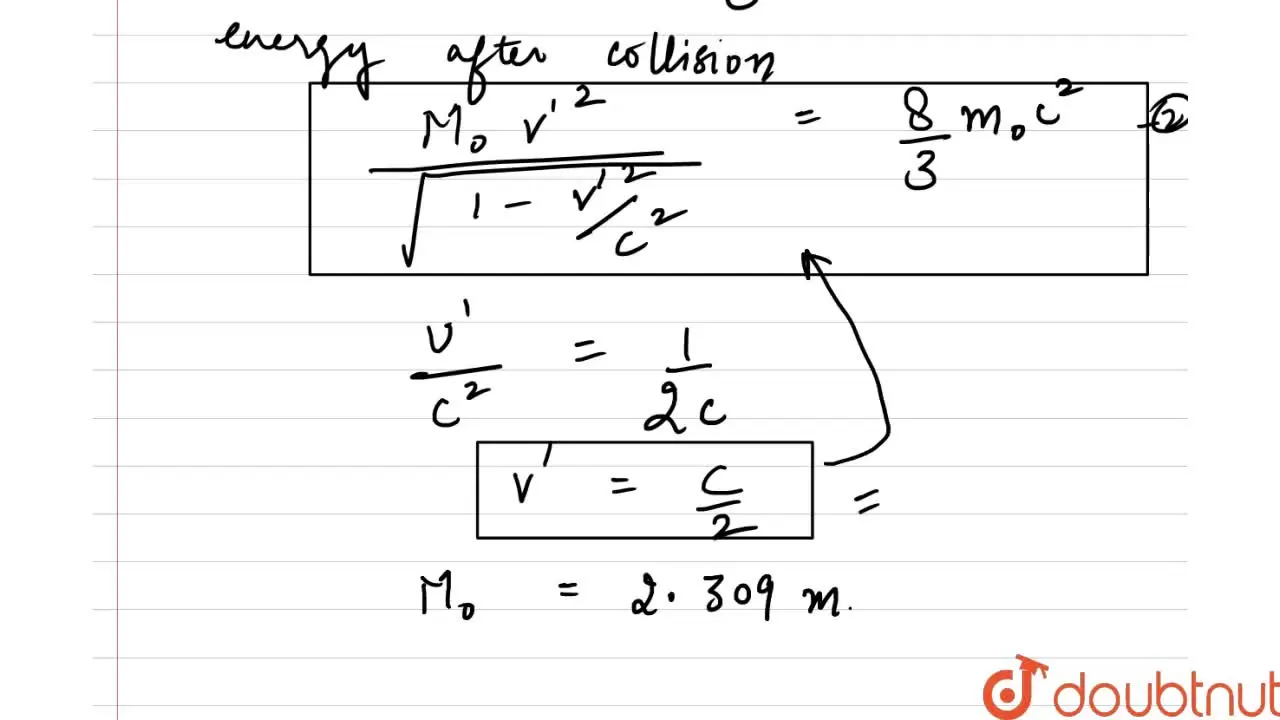 energy after collision
M₀ v'² / √(1 - v'²/c²) = 8/3 m₀ c² -②
v'/c² = 1/2c
v' = c/2 =
M₀ = 2.309 m.
doubtnut